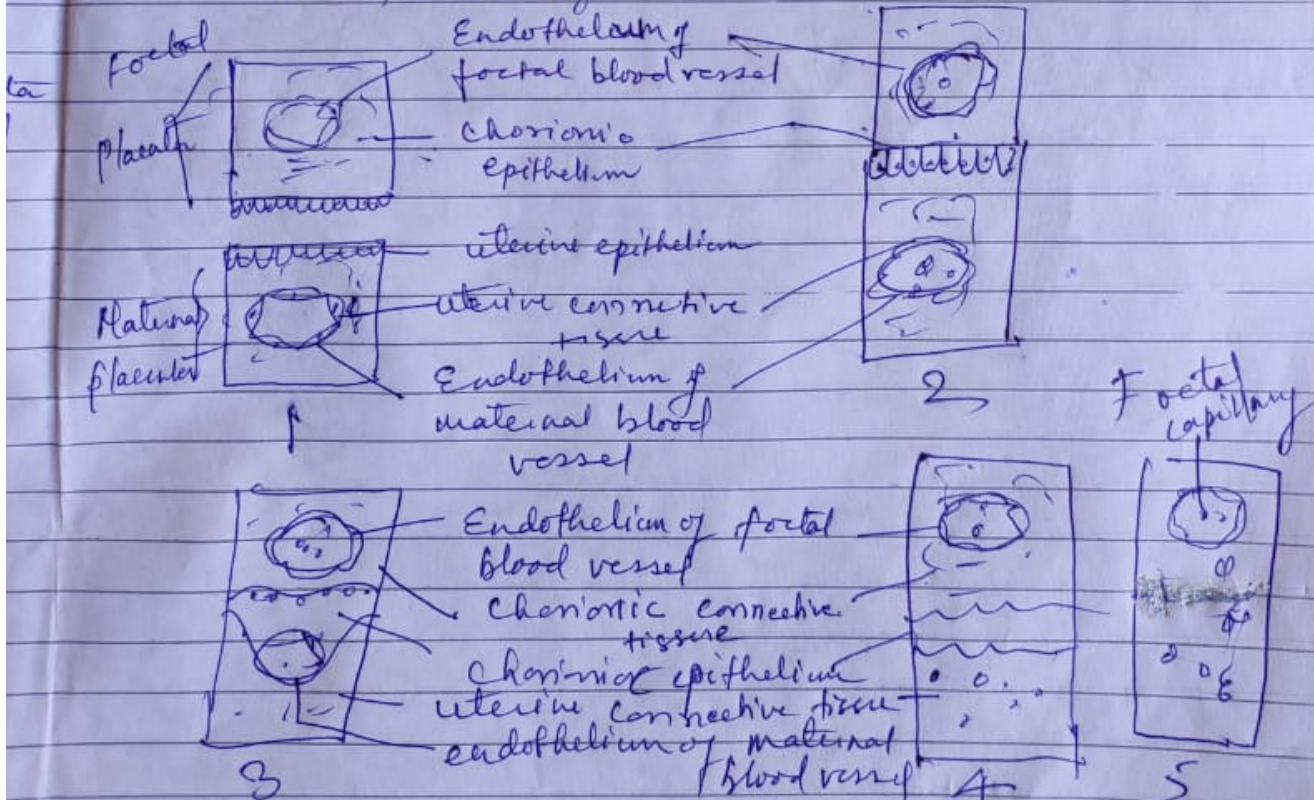 Foetal
Placenta
Endothelium of
foetal blood vessel
chorionic
epithelium
uterine epithelium
uterive connective
tissure
Maternal
placenta
Endothelium of
maternal blood
vessel
1
2
Foetal
capillary
Endothelium of foetal
blood vessel
Chorionic connective
tissure
Chorionic epithelium
uterine connective tissue
endothelium of maternal
blood vessel
3
4
5